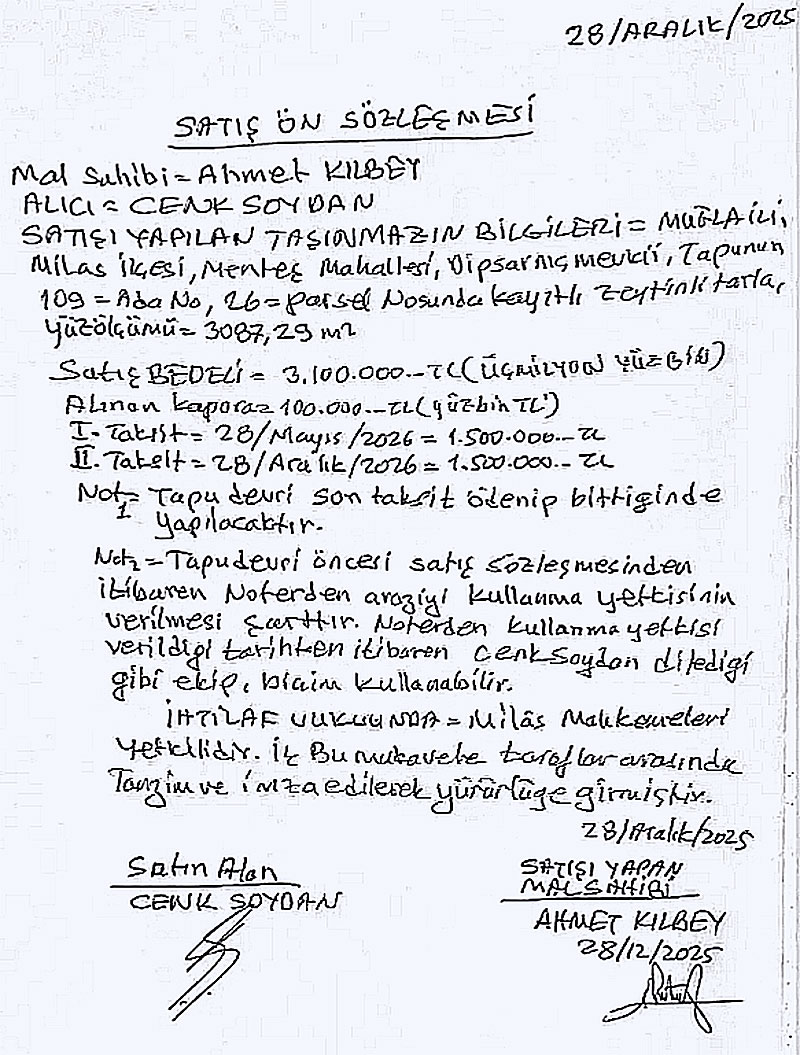 28/ARALIK/2025
SATIŞ ÖN SÖZLEŞMESİ
Mal Sahibi = Ahmet KILBEY
ALICI = CENK SOYDAN
SATIŞI YAPILAN TAŞINMAZIN BİLGİLERİ = MUĞLA İLİ,
Milas İlçesi, Menteş Mahallesi, Dipsarnıç mevkii, Tapunun
109 = Ada No, 26 = parsel Nosunda kayıtlı zeytinli tarla,
yüzölçümü = 3087,29 m²
Satış BEDELİ = 3.100.000.-- TL (ÜÇMİLYON YÜZBİN)
Alınan kapora = 100.000.-- TL (yüzbin TL)
I. Taksit = 28/Mayıs/2026 = 1.500.000.-- TL
II. Taksit = 28/Aralık/2026 = 1.500.000.-- TL
Not 1 = Tapu devri son taksit ödenip bittiğinde
yapılacaktır.
Not 2 = Tapu devri öncesi satış sözleşmesinden
itibaren Noterden araziyi kullanma yetkisinin
verilmesi şarttır. Noterden kullanma yetkisi
verildiği tarihten itibaren Cenk Soydan dilediği
gibi ekip, biçim kullanabilir.
İHTİLAF VUKUUNDA = Milâs Mahkemeleri
yetkilidir. İş Bu mukavele taraflar arasında
Tanzim ve imza edilerek yürürlüğe girmiştir.
28/Aralık/2025
Satın Alan
CENK SOYDAN
SATIŞI YAPAN
MAL SAHİBİ
AHMET KILBEY
28/12/2025